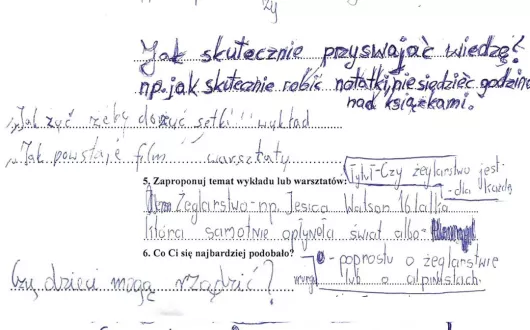 zy
Jak skutecznie przyswajać wiedzę?
np. jak skutecznie robić notatki, nie siedzieć godzinami
nad książkami.
"Jak żyć żeby dożyć setki" wykład
"Jak powstaje film" warsztaty
5. Zaproponuj temat wykładu lub warsztatów: Tytuł - Czy żeglarstwo jest
- dla każdego
Żeglarstwo - np. Jesica Watson 16latka
która samotnie opłynęła świat albo -
6. Co Ci się najbardziej podobało? - poprostu o żeglarstwie
lub o alpinistach.
Czy dzieci mogą rządzić?